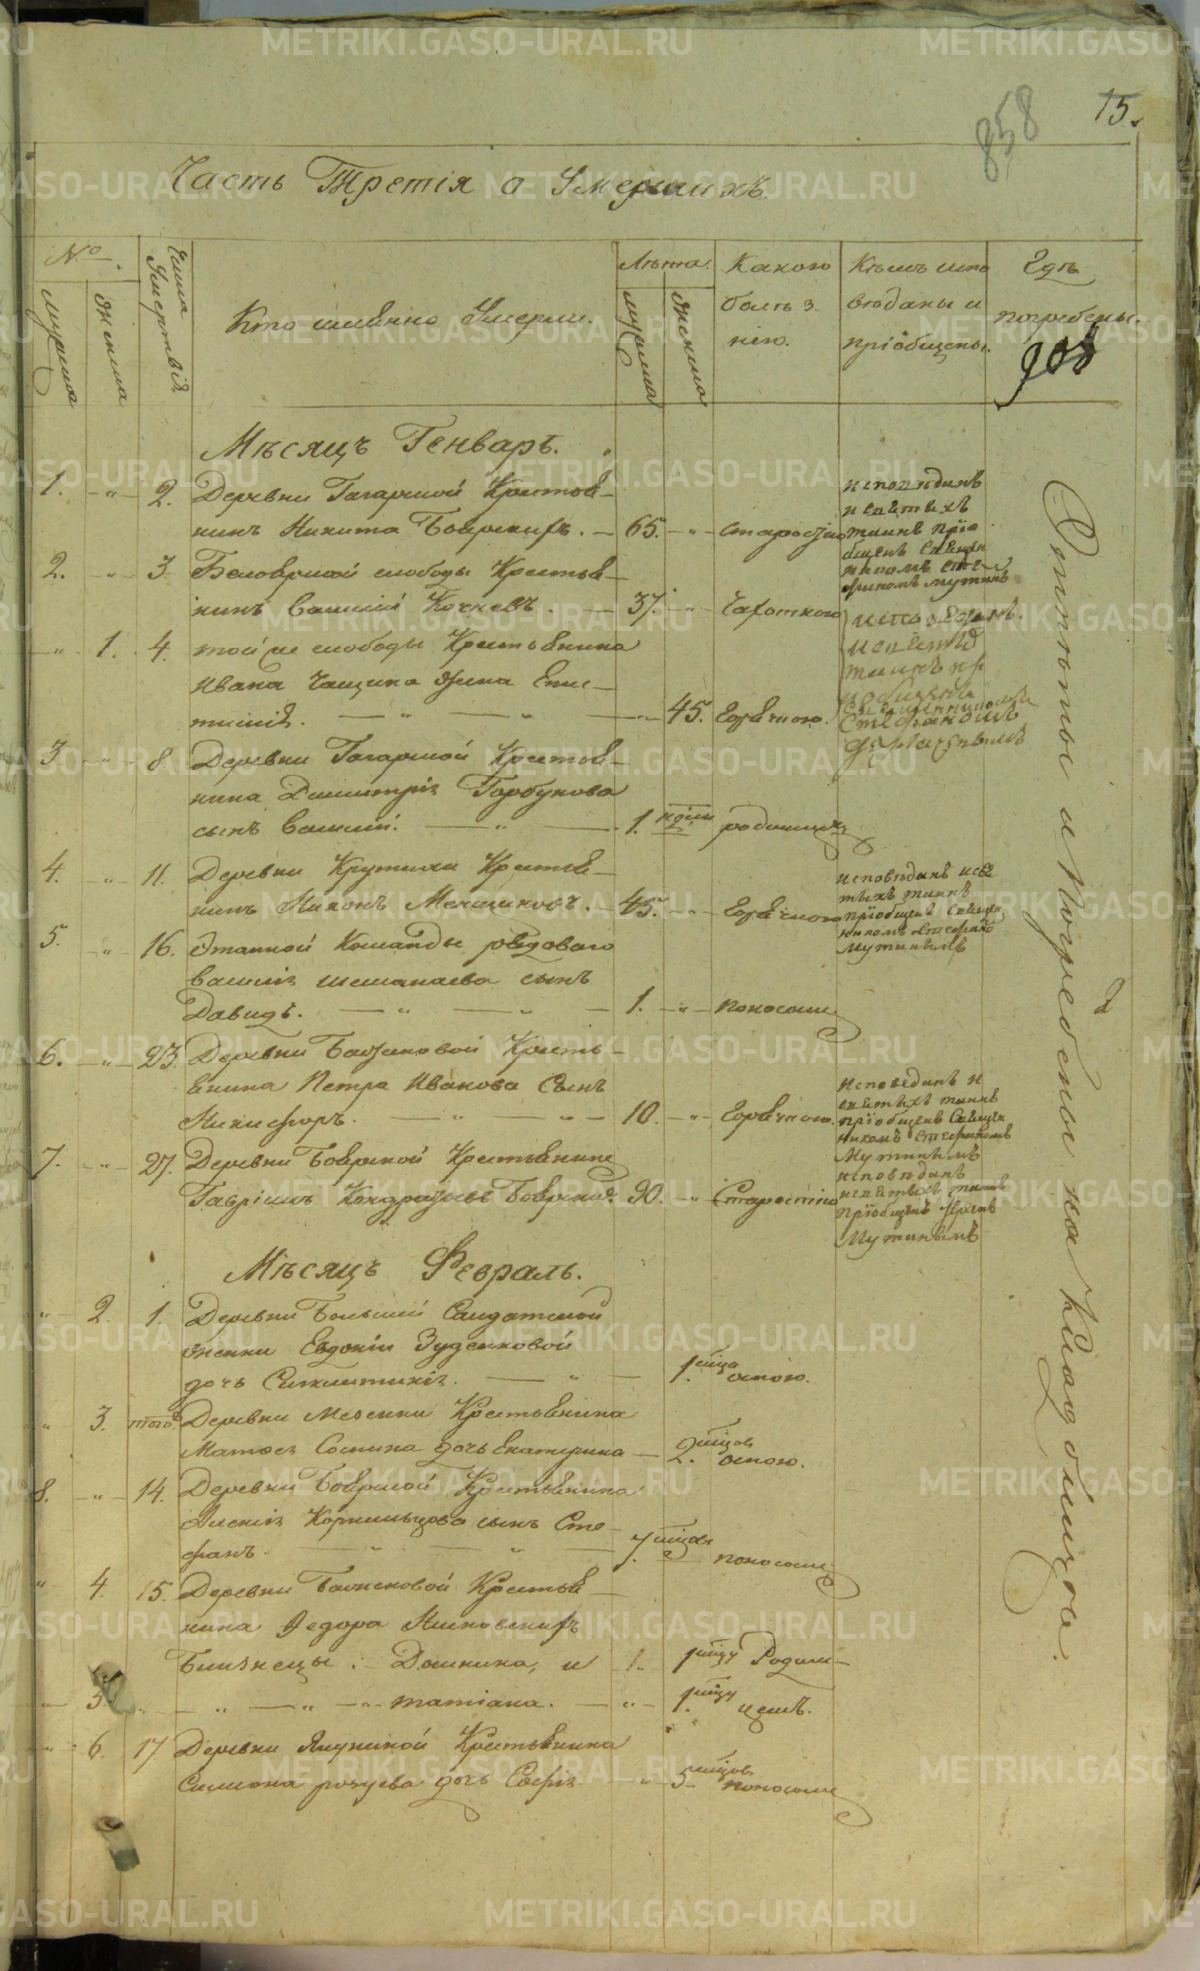 858
15.
Часть Третія о Умершихъ
№
Мужска
Женска
Числа Смертвія
Кто имѣнно Умерли.
Лѣта.
мужска
Женска
Какою
болѣз
нію.
Кѣмъ испо
вѣданы и
пріобщены.
Гдѣ
погребены.
908
Мѣсяцъ Генварь.
1. - " - 2. Деревни Гагарской Крестья-
нинъ Никита Боярскихъ. - 65. - " - старостію
исповѣданъ
и святыхъ
таинъ пріо
бщенъ Священ
никомъ Сте
фаномъ Мутинъ
2. - " - 3. Белоярской слободы Крестья-
нинъ Василій Кочневъ. - 37. - " - Чахоткою
исповѣданъ
и святых
таинъ пр
іобщена
Священникомъ
Стефаномъ
- " - 1. 4. той же слободы Крестьянина
Ивана Чащина Жена Епис-
тимія. - " - " - 45. Горячкою.
3. - " - 8. Деревни Гагарской Крестья-
нина Димитрія Горбунова
сынъ Василій. - " - 1. недѣли родимцемъ
4. - " - 11. Деревни Крутихи Крестья-
нинъ Никонъ Меншиковъ. - 45. - " - Горячкою
исповѣданъ и свя
тыхъ таинъ
пріобщенъ Священ
никомъ Стефано
Мутинымъ
5. - " - 16. Этапной Команды рядоваго
Василія сынъ
Давидъ. - " - " - 1. - " - поносомъ
6. - " - 23. Деревни Баженовой Кресть-
янина Петра Иванова Сынъ
Никифоръ. - " - " - 10. - " - Горячкою.
Исповѣданъ и
святыхъ таинъ
пріобщенъ Священ
никомъ Стефаномъ
Мутинымъ
7. - " - 27. Деревни Боярской Крестьянинъ
Гавріилъ Кондратьевъ Боярскихъ 90. - " - Старостію
исповѣданъ
и святыхъ таинъ
пріобщенъ
Мутинымъ
Мѣсяцъ Февраль.
" - 2. 1. Деревни Большей Салдатской
женки Евдокіи Зуденковой
дочь Синклитикія. - " - 1. мѣца оспою.
" 3. того Деревни Мезенки Крестьянина
Матвея Соснина дочь Екатерина - 2. мѣцов оспою.
8. - " - 14. Деревни Боярской Крестьянина
Алексія Корнильцова сынъ Сте-
фанъ. - " - " - 7 мѣцов поносомъ
" - 4. 15. Деревни Баженовой Крестья-
нина Федора
Близнецы: Домнина, и - 1. 1 мѣцу Родим-
- " - 5. " - " - " - татіана. - " - 1. мѣцу цемъ.
- " - 6. 17 Деревни Ялуниной Крестьянина
Симиона дочь Софія " - 5 мѣцов поносомъ
Отпѣты и Погребены на Кладбищѣ.